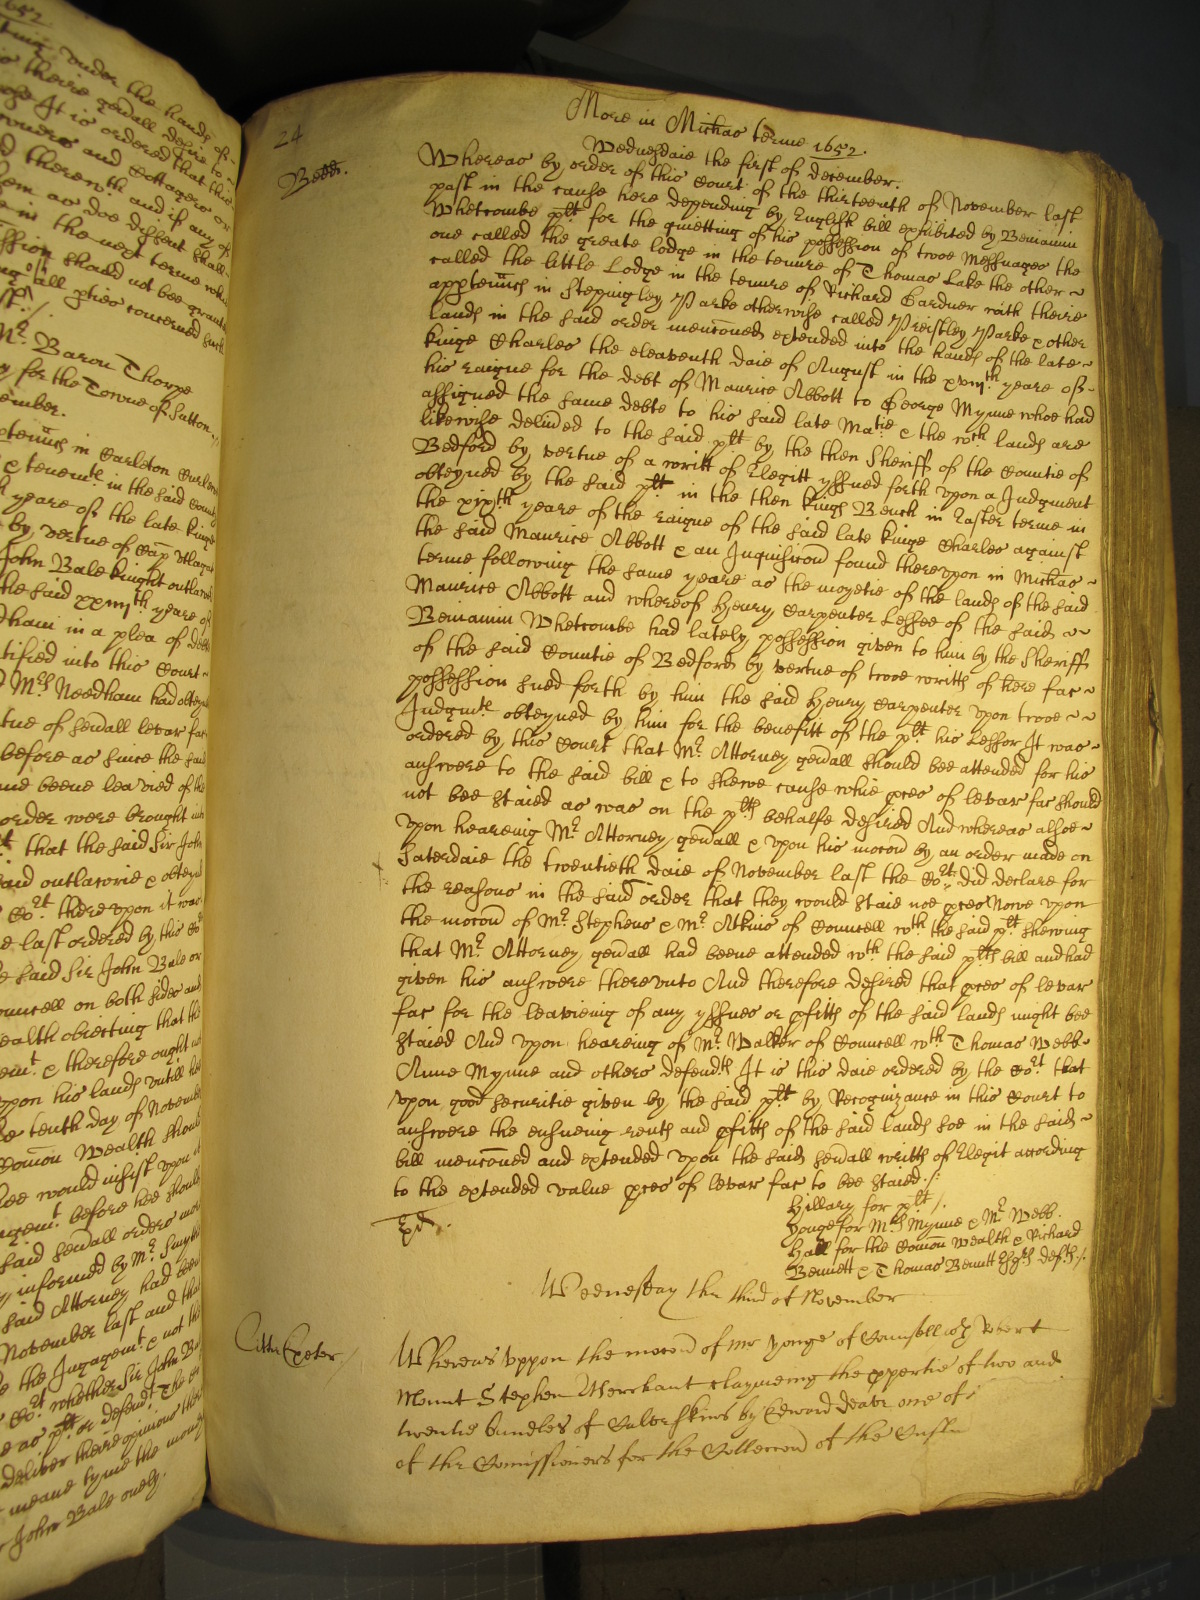 1652.
under the hands of
theire genall desire to
It is ordered that the
and Cottagers or
therein and if any of
as doe dissent shall
in the next terme
should not bee graunt
all pties concerned
Mr. Baron Thorpe
for the Towne of Sutton
ember.
in Carleton
& tenemte. in the said County
yeare of the late kinge
by vertue of Cap Utlagat
John Bale knight outlawed
the said xxiijth yeare of
in a plea of debt
tified into this Court
Mrs Needham had obteyned
of sevall levar fac
before as since the said
beene leavied of the
order were brought into
that the said Sir John
said outlawrie & obteyned
Cort thereupon it was
last ordered by this Cort
said Sir John Bale or
ouncell on both sides and
ealth objecting that the
& therefore ought not
upon his lands untill the
tenth day of November
Comon wealth should
would insist upon it
before hee should
said sevall orders
informed by Mr. Smyth
said Attorney had been
November last and that
the Judgemt & not the
Cort whether Sir John Bale
as plt or defendt The
deliver theire opinions
meane tyme the mony
John Bale onely.
24
More in Michas terme 1652.
Wednesdaie the first of december.
Bedd.
Whereas by order of this Court of the thirteenth of November last
past in the cause here depending by English bill exhibited by Beniamin
Whetcombe plt. for the quietting of his possession of twoe Messuages the
one called the greate lodge in the tenure of Thomas Lake the other ~
called the little Lodge in the tenure of Richard Gardner with theire
apptennces in Steppingley Parke otherwise called Priestley Parke & other
lands in the said order menconed extended into the hands of the late ~
kinge Charles the eleaventh daie of August in the xviijth. yeare of ~
his raigne for the debt of Maurice Abbott to George Mynne whoe had
assigned the same debte to his said late Matie & the wch lands are
likewise delived to the said plt by the then Sheriff of the Countie of
Bedford by vertue of a writt of Elegitt yssued forth upon a Judgment
obteyned by the said plt. in the then kings Bench in Easter terme in
the xixth yeare of the raigne of the said late kinge Charles against
the said Maurice Abbott & an Inquisicon found thereupon in Michas ~
terme following the same yeare as the moyetie of the lands of the said
Maurice Abbott and whereof Henry Carpenter Lessee of the said ~ ~
Beniamin Whetcombe had lately possession given to him by the Sheriff
of the said Countie of Bedford by vertue of twoe writts of here fac ~
possession sued forth by him the said Henry Carpenter upon twoe ~ ~
Judgmts. obteyned by him for the benefitt of the plt his Lessor It was ~
ordered by this Court that Mr. Attorney genall should bee attended for his
answere to the said bill & to shewe cause whie pces of levar fac should
not bee staied as was on the plts behalfe desired And whereas alsoe ~
upon hearing Mr. Attorney genall & upon his mocon by an order made on
Saterdaie the twentieth daie of November last the Cort. did declare for
the reasons in the said order that they would staie noe pces Nowe upon
the mocon of Mr. Stephens & Mr. Atkins of Councell wth the said plt. shewing
that Mr. Attorney genall had beene attended wth. the said plts bill and had
given his answere thereunto And therefore desired that pces of levar
fac for the leavieing of any yssues or pfitts of the said lands might bee
staied And upon hearing of Mr. Walker of Councell wth Thomas Webb ~
Anne Mynne and others defendts It is this daie ordered by the Cort. that
upon good securitie given by the said plt. by Recognizance in this Court to
answere the ensueing rents and pfitts of the said lands soe in the said ~
bill menconed and extended upon the said sevall writts of Elegit according
to the extended value pces of levar fac to bee staied./:
Exd.
Hillary for plt/.
Yonge for Mrs Mynne & Mr. Webb.
Hall for the Comon Wealth & Richard
Bennett & Thomas Bennett Esqrs defts/.
Wednesday the third of November
Citty Exeter./
Whereas uppon the mocon of Mr Yonge of Counsell wth Robert
Mount Stephen Merchant claymeing the ppertie of two and
twentie bundles of Calveskins by Edward deave one of
of the Comissioners for the Colleccon of the Custm